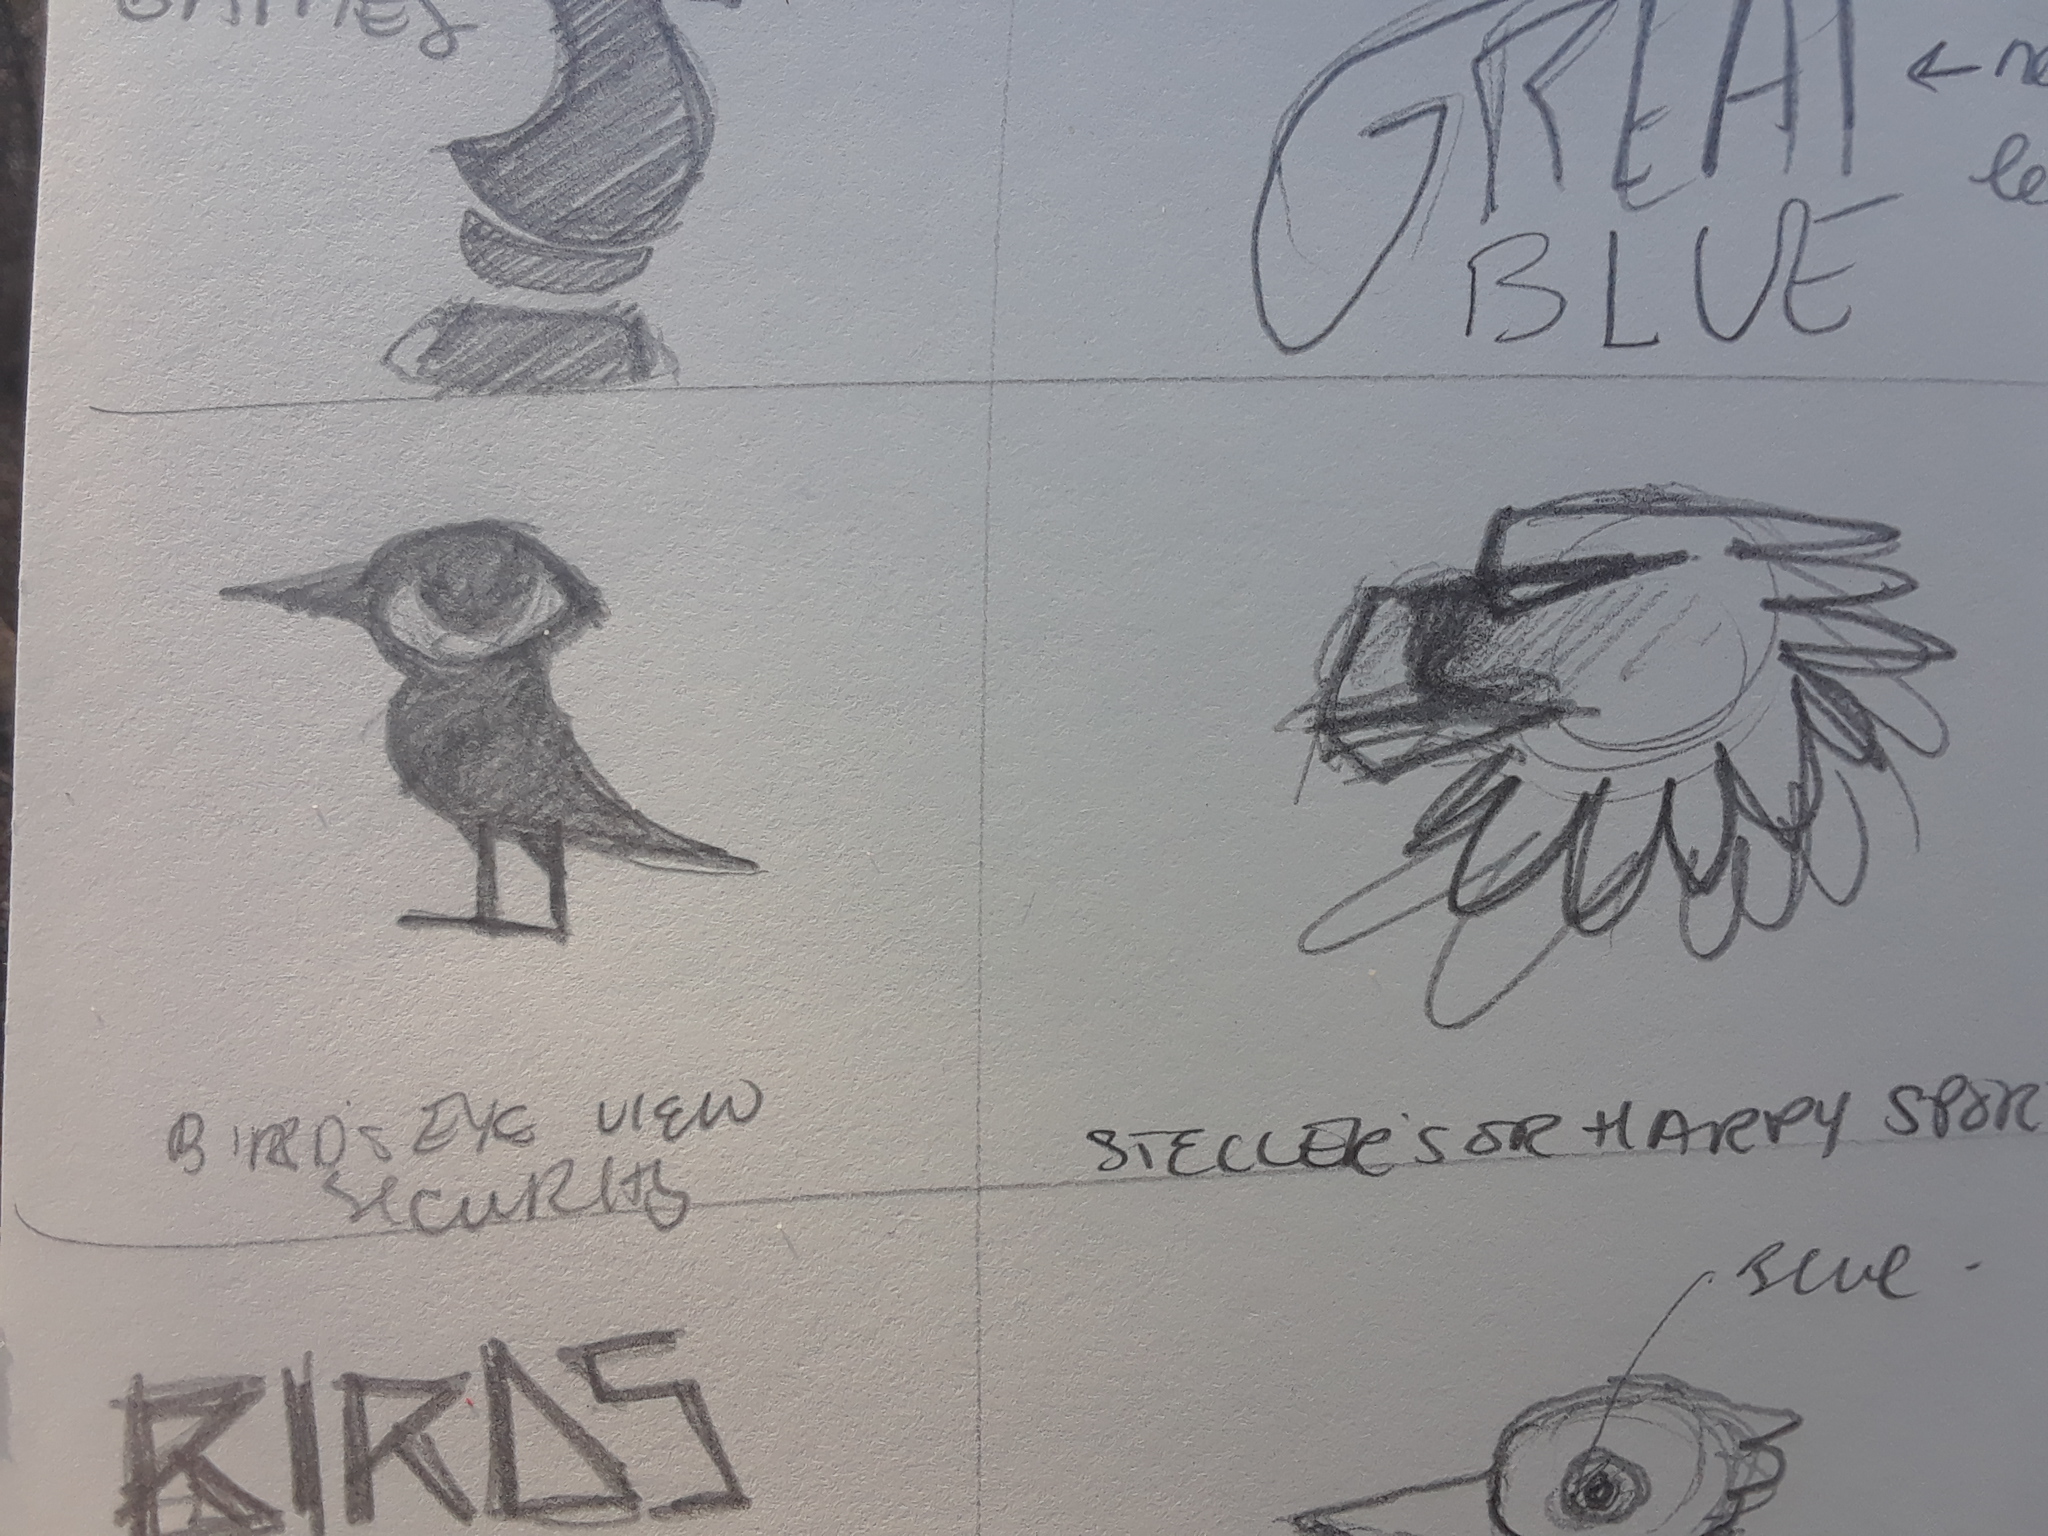 GAMES
GREAT
BLUE
BIRD'S EYE VIEW
SECURITY
STELLER'S OR HARPY SPOR
BLUE -
BIRDS